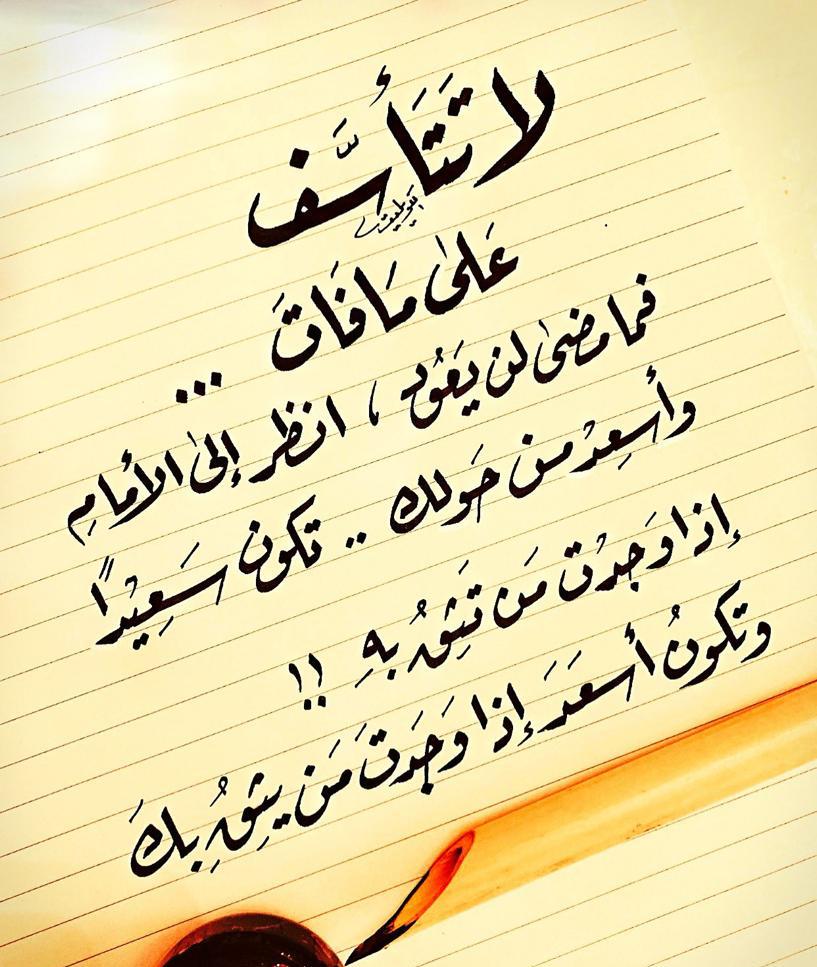 لا تَتَأسَّف
عَلىٰ مَا فَاتَ ...
فما مضىٰ لن يَعُود ، انظر إلىٰ الأمامِ
وأسعِدْ من حَولك .. تكون سَعِيْدًا
إذا وَجدْت مَن تَثِقُ بهِ !!
وتكونُ أسعَدَ إذا وَجَدَتَ مَن يثِقُ بِكَ